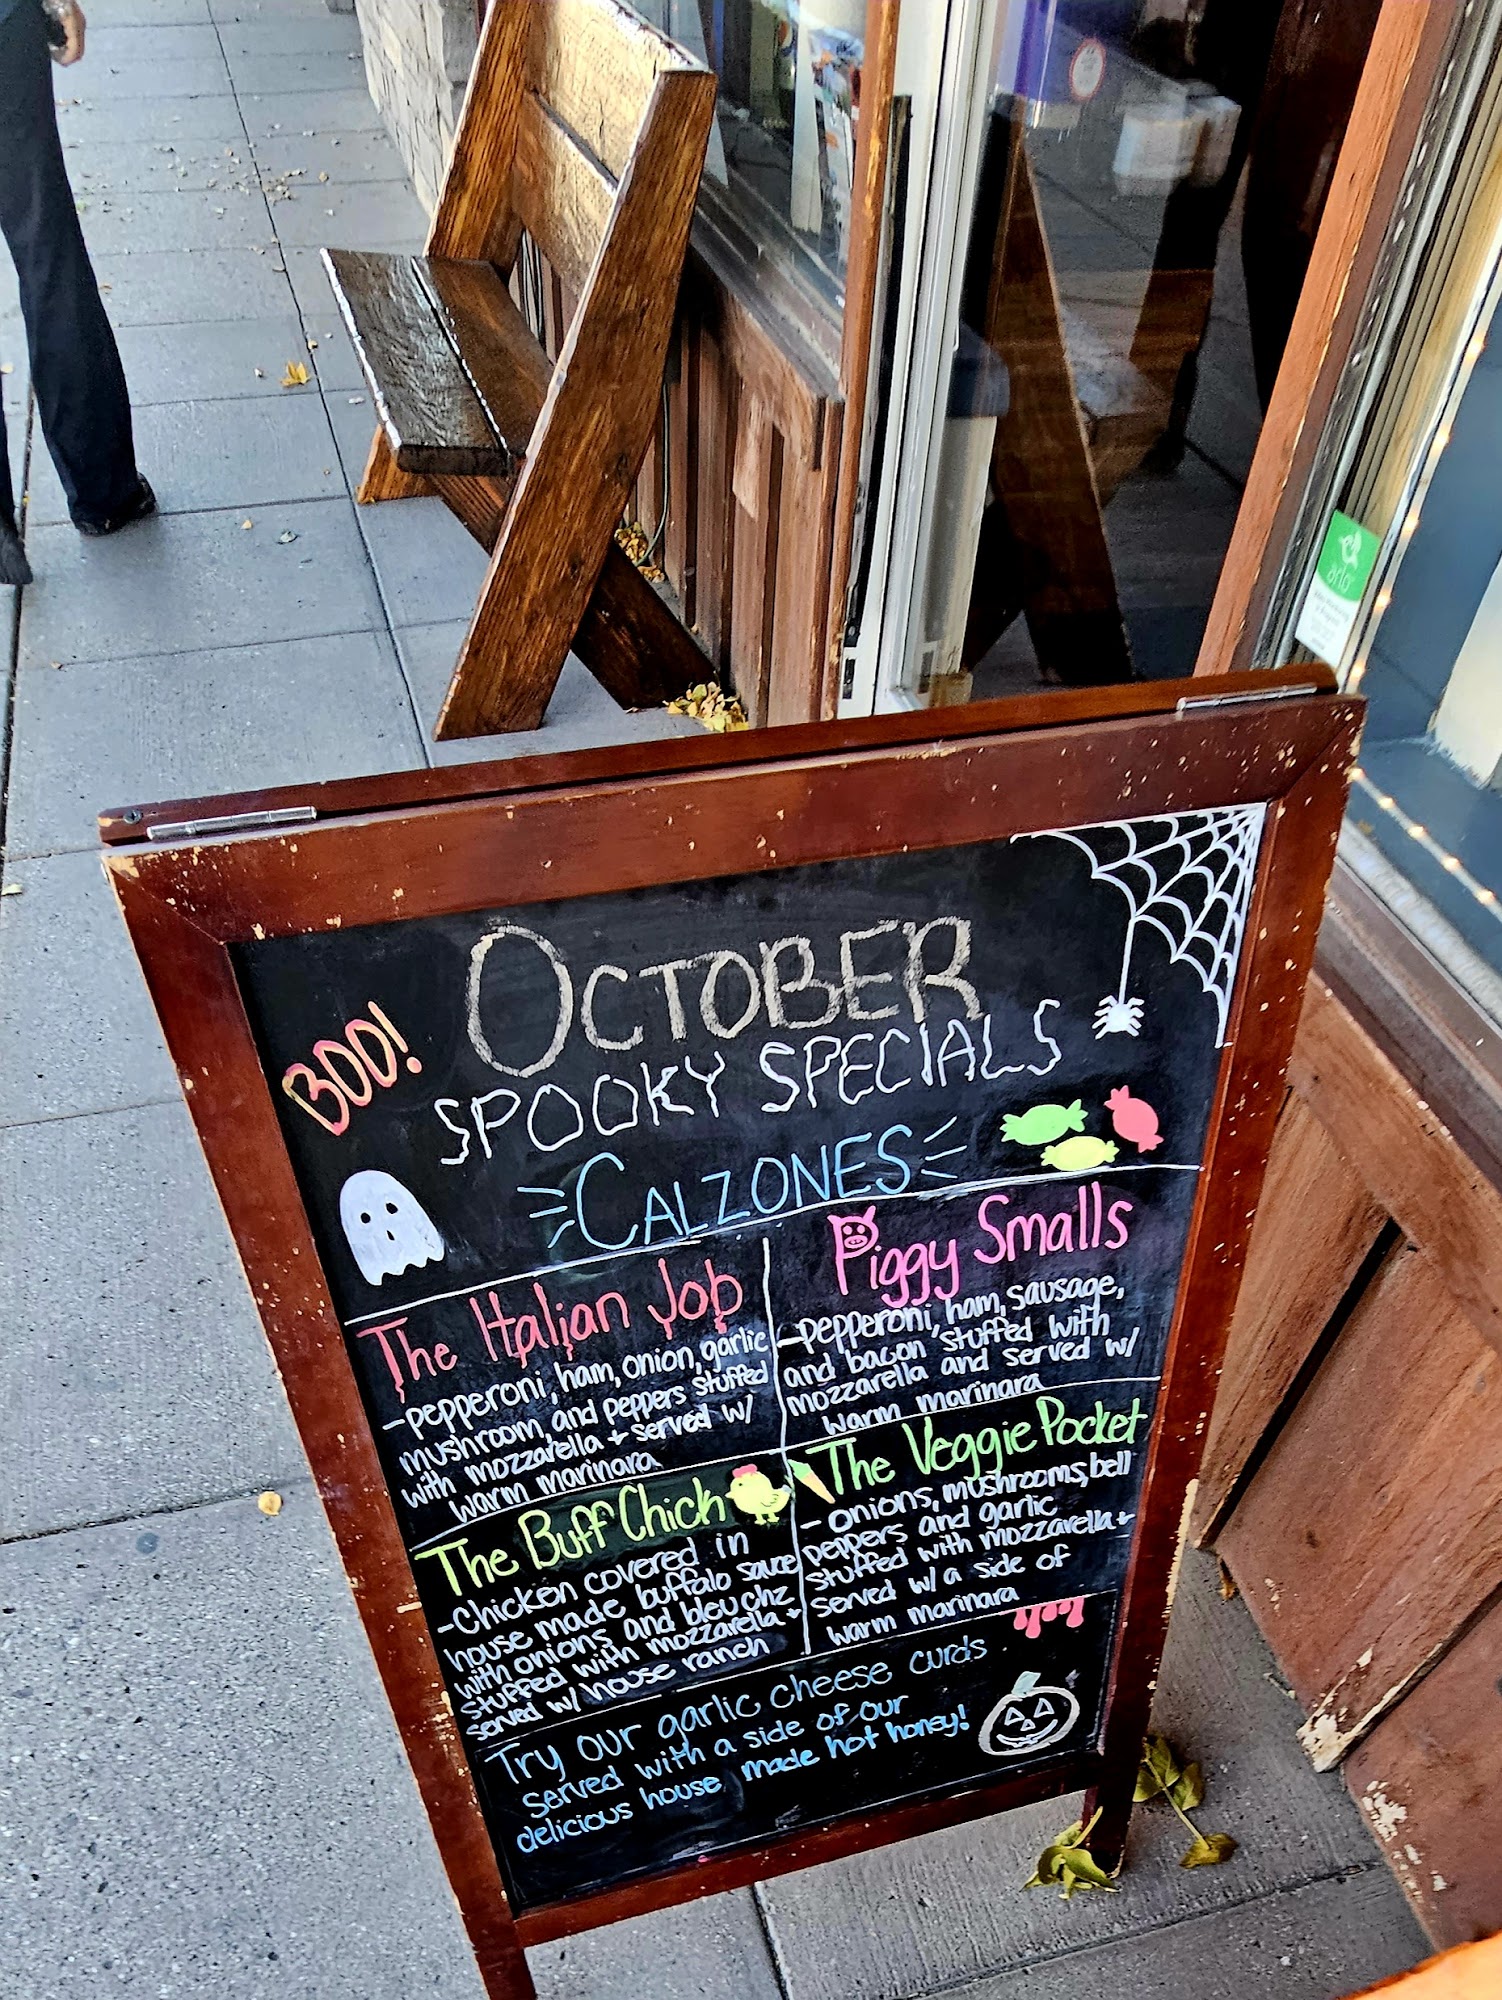 BOO!
OCTOBER
SPOOKY SPECIALS
CALZONES
The Italian Job
-pepperoni, ham, onion, garlic
mushroom, and peppers stuffed
with mozzarella + served w/
warm marinara
Piggy Smalls
-pepperoni, ham, sausage,
and bacon stuffed with
mozzarella and served w/
warm marinara
The Buff Chick
-chicken covered in
house made buffalo sauce
with onions and bleu chz
stuffed with mozzarella +
served w/ house ranch
The Veggie Pocket
- onions, mushrooms, bell
peppers and garlic
stuffed with mozzarella +
served w/ a side of
warm marinara
Try our garlic cheese curds
served with a side of our
delicious house made hot honey!
arlo